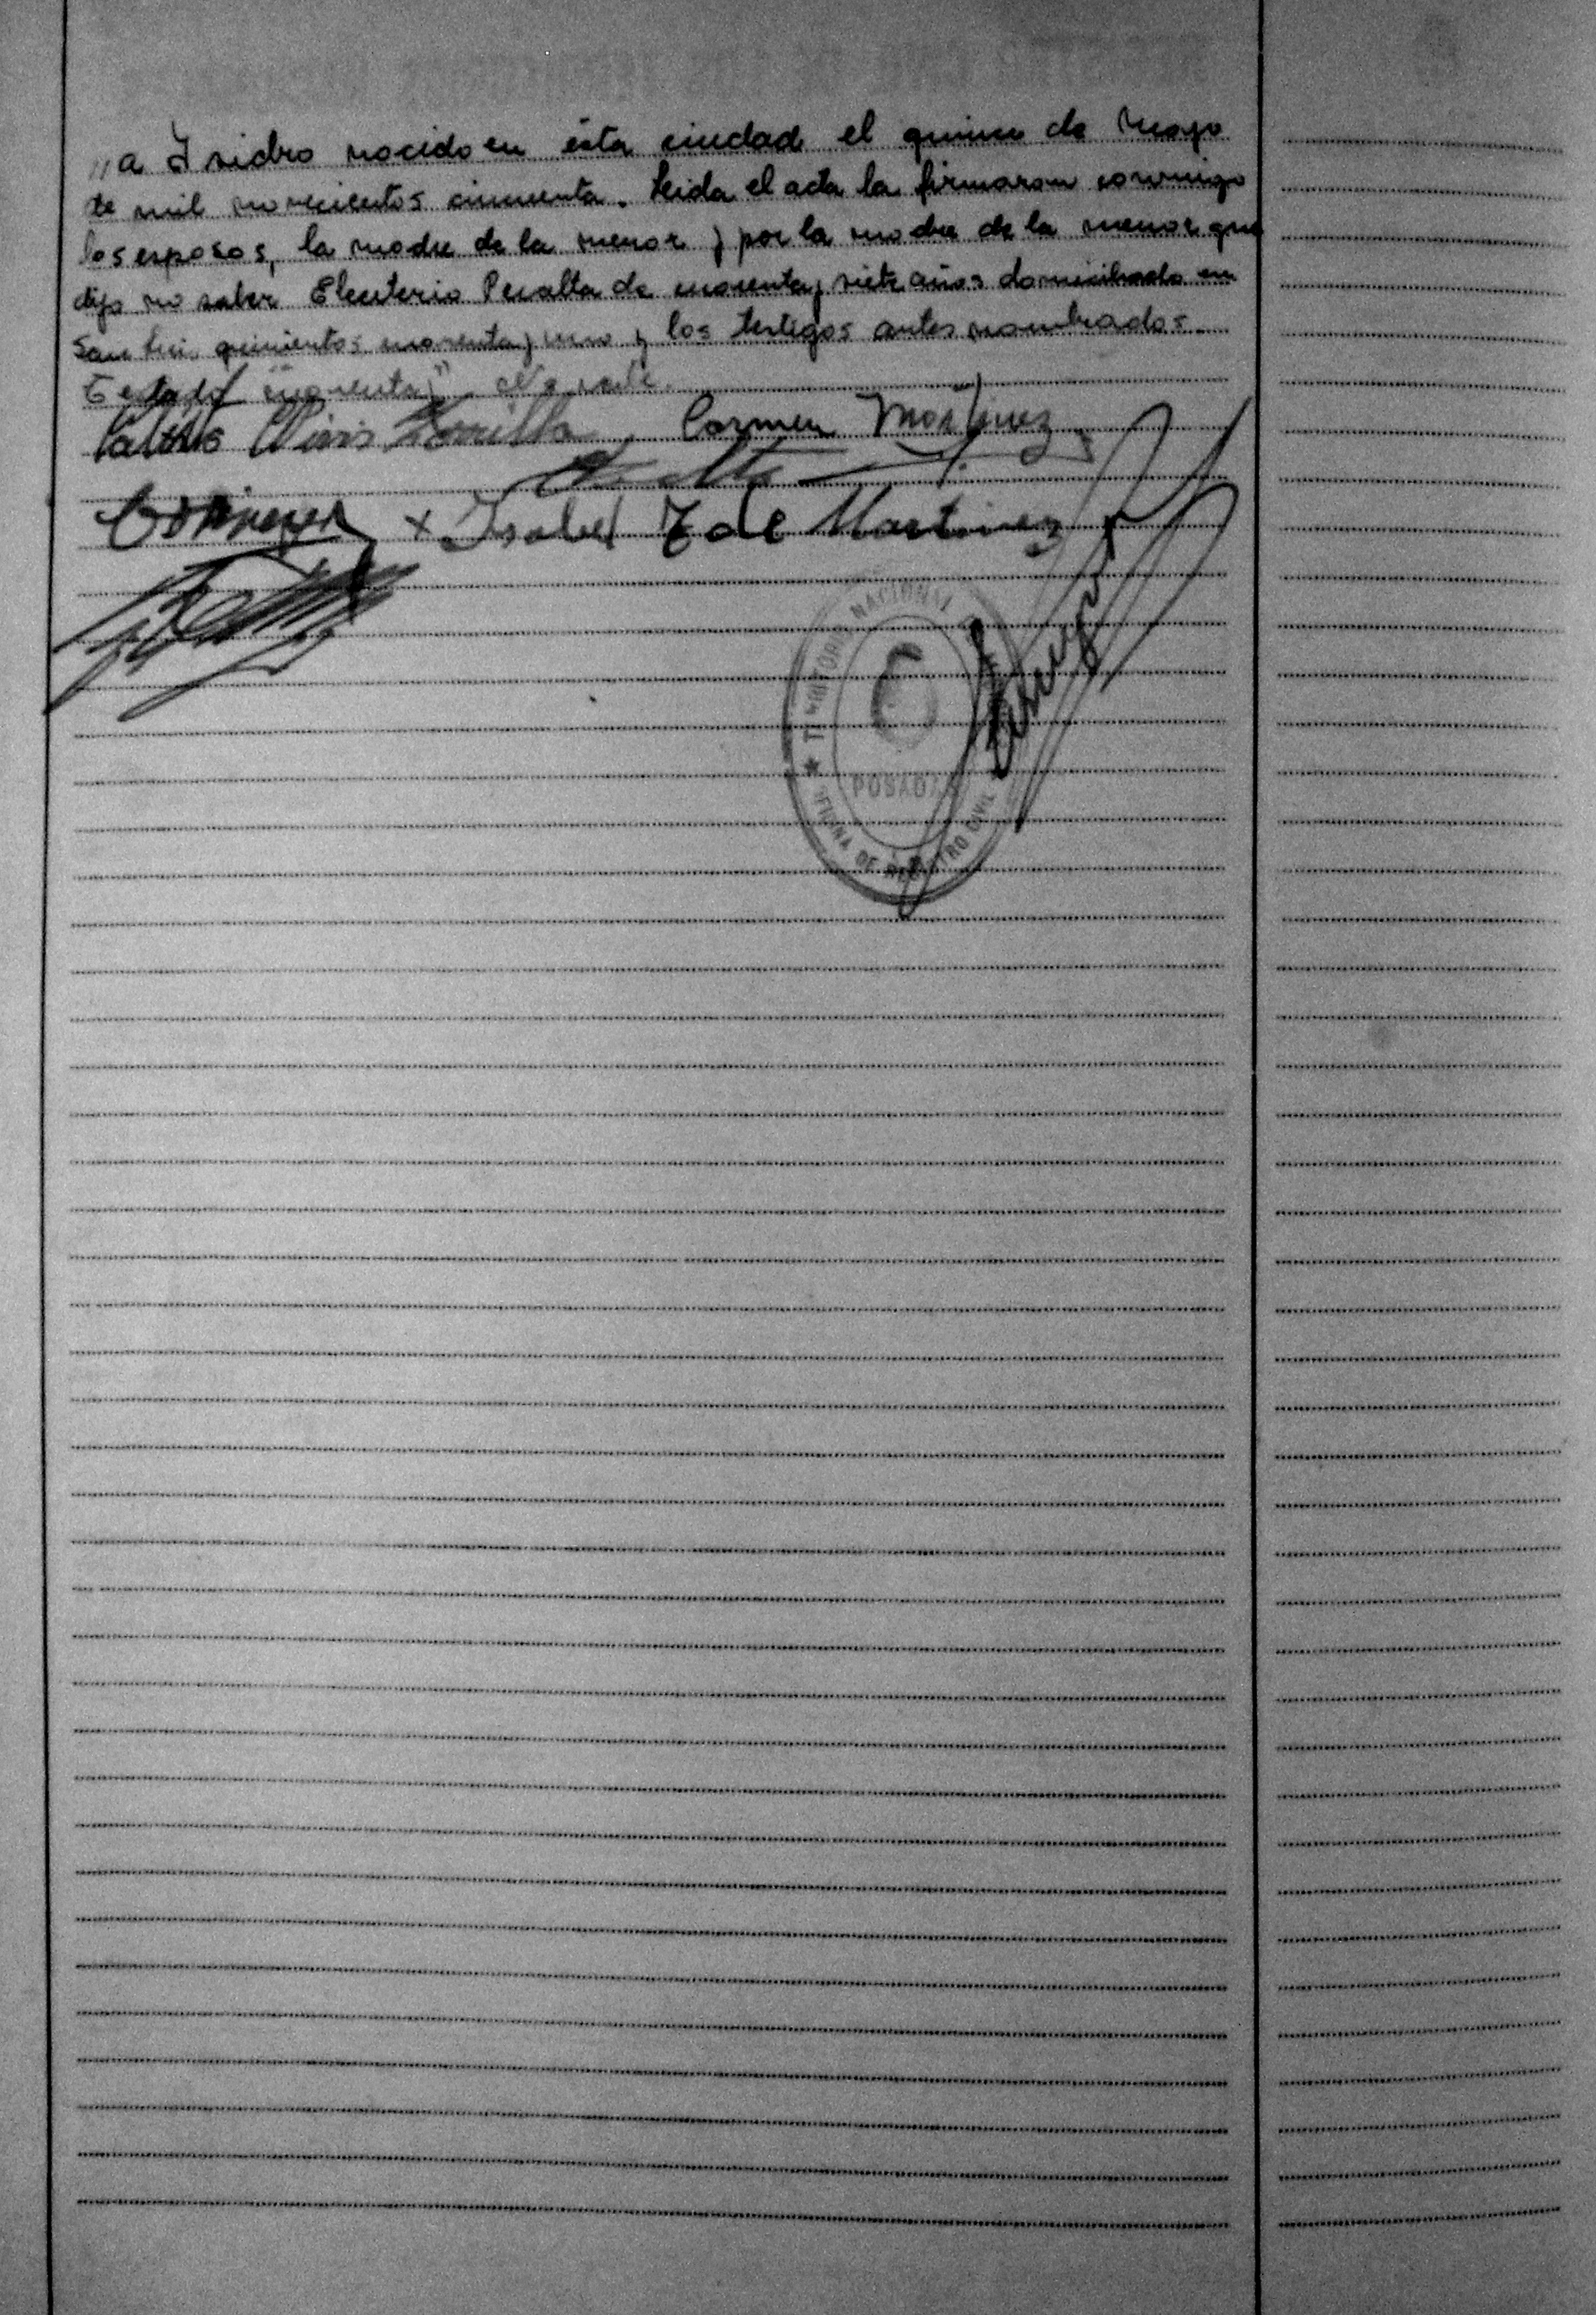 „a Isidro nacido en ésta ciudad el quince de mayo
de mil novecientos cincuenta. Leida el acta la firmaron conmigo
los esposos, la madre de la menor y por la madre de la menor que
dijo no saber Eleuterio Peralta de cuarenta y siete años domiciliado en
San Luis quinientos cuarenta y uno y los testigos antes nombrados.
Testado "cuarenta y" No vale.
Carmen Martinez
x Isabel Z de Martinez
TERRITORIO NACIONAL
POSADAS
★ OFICINA DE REGISTRO CIVIL